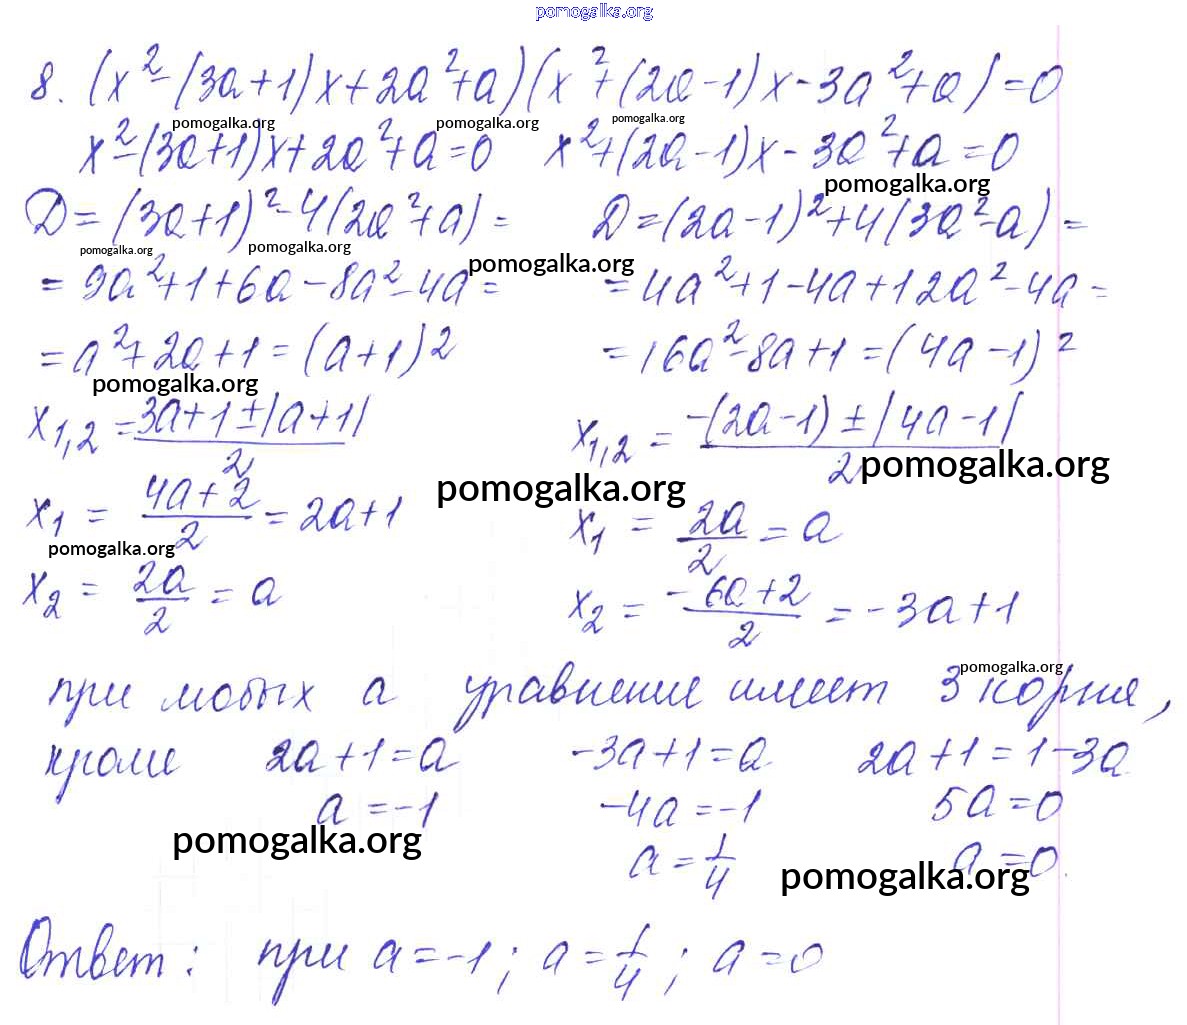 pomogalka.org
8. (x²-(3a+1)x+2a²+a)(x²+(2a-1)x-3a²+a)=0
pomogalka.org pomogalka.org pomogalka.org
x²-(3a+1)x+2a²+a=0 x²+(2a-1)x-3a²+a=0
pomogalka.org
D=(3a+1)²-4(2a²+a)= D=(2a-1)²+4(3a²-a)=
pomogalka.org pomogalka.org pomogalka.org
=9a²+1+6a-8a²-4a= =4a²+1-4a+12a²-4a=
=a²+2a+1=(a+1)² =16a²-8a+1=(4a-1)²
pomogalka.org
x₁,₂=(3a+1±|a+1|)/2 x₁,₂=(-(2a-1)±|4a-1|)/2
pomogalka.org pomogalka.org
x₁=(4a+2)/2=2a+1 x₁=2a/2=a
pomogalka.org
x₂=2a/2=a x₂=(-6a+2)/2=-3a+1
pomogalka.org
при любых а уравнение имеет 3 корня,
кроме 2a+1=a -3a+1=a 2a+1=1-3a
a=-1 -4a=-1 5a=0
pomogalka.org
a=1/4 a=0
pomogalka.org
Ответ: при a=-1; a=1/4; a=0